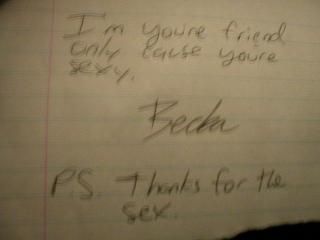 I'm youre friend
only cause youre
sexy.
Becka
P.S. Thanks for the
sex.